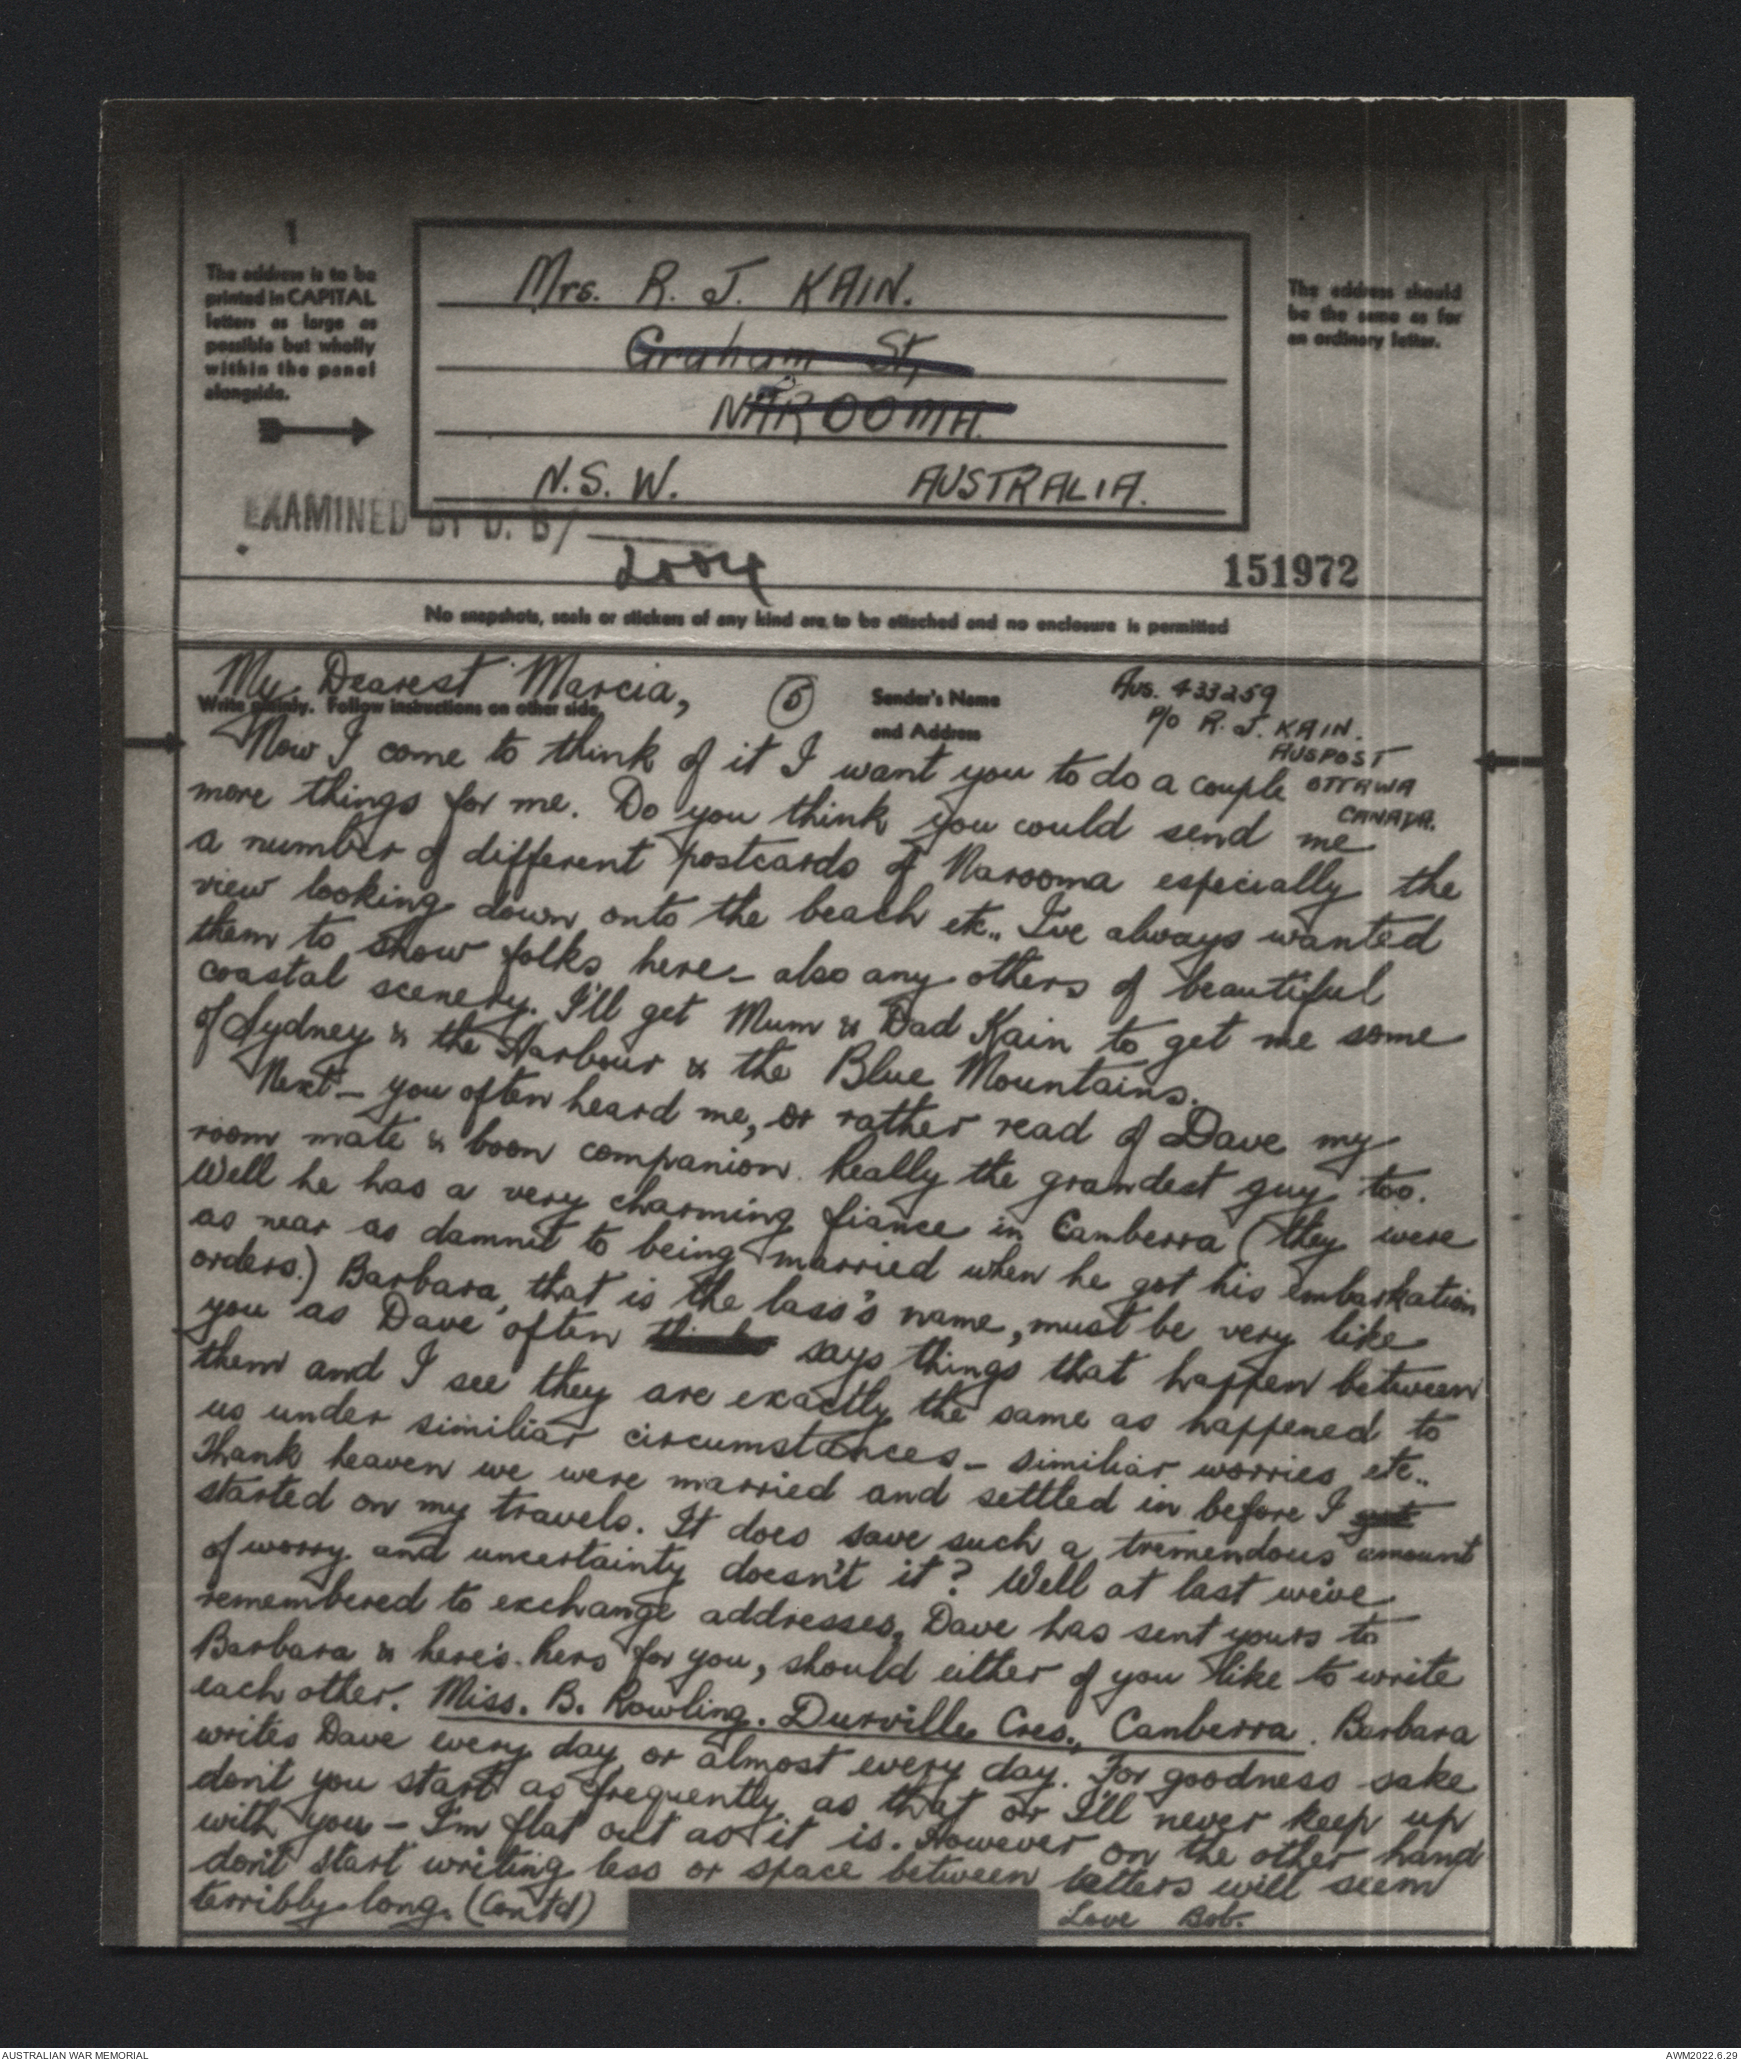 1
The address is to be
printed in CAPITAL
letters as large as
possible but wholly
within the panel
alongside.
Mrs. R. J. KAIN.
Graham St,
NAROOMA.
N.S.W. AUSTRALIA.
The address should
be the same as for
an ordinary letter.
EXAMINED BY D. B/
2004
151972
No snapshots, seals or stickers of any kind are to be attached and no enclosure is permitted
My Dearest Marcia,
Write plainly. Follow instructions on other side.
(5)
Sender's Name
and Address
Aus. 433259
P/O R. J. KAIN.
AUSPOST
OTTAWA
CANADA.
Now I come to think of it I want you to do a couple
more things for me. Do you think you could send me
a number of different postcards of Narooma especially the
view looking down onto the beach etc.. I've always wanted
them to show folks here - also any others of beautiful
coastal scenery. I'll get Mum & Dad Kain to get me some
of Sydney & the Harbour & the Blue Mountains.
Next - you often heard me, or rather read of Dave my
room mate & boon companion. Really the grandest guy too.
Well he has a very charming fiance in Canberra (they were
as near as damnit to being married when he got his embarkation
orders.) Barbara, that is the lass's name, must be very like
you as Dave often says things that happen between
them and I see they are exactly the same as happened to
us under similiar circumstances - similiar worries etc..
Thank heaven we were married and settled in before I got
started on my travels. It does save such a tremendous amount
of worry and uncertainty doesn't it? Well at last we've
remembered to exchange addresses, Dave has sent yours to
Barbara & here's hers for you, should either of you like to write
each other. Miss. B. Rowling. Durville Cres., Canberra. Barbara
writes Dave every day or almost every day. For goodness sake
don't you start as frequently as that or I'll never keep up
with you - I'm flat out as it is. However on the other hand
don't start writing less or space between letters will seem
terribly long. (Cont'd)
Love Bob.
AUSTRALIAN WAR MEMORIAL
AWM2022.6.29